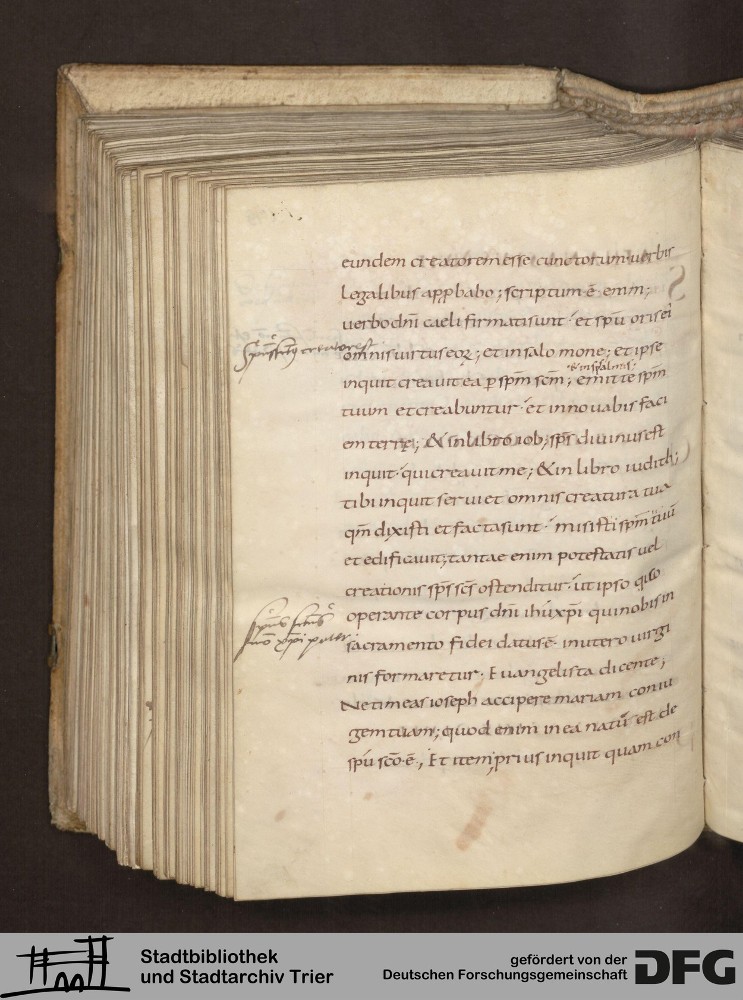 eundem creatorem esse cunctorum uerbis
legalibus app̱babo; scriptum ē enim;
uerbo dn̄i caeli firmati sunt et spū oris ei
spūs scūs creator est
omnis uirtus eoꝝ; et in salomone; et ipse
inquit creauit ea ꝑ spm̄ scm̄; emitte spm̄
& in psalmis;
tuum et creabuntur et innouabis faci
em terrę; & in libro iob; sps̄ diuinus est
inquit qui creauit me; & in libro iudith;
tibi inquit seruiet omnis creatura tua
qm̄ dixisti et facta sunt misisti spm̄ tuū
et edificauit; tantae enim potestatis uel
creationis sps̄ scs̄ ostenditur ut ipso quo
operante corpus dn̄i ihū xp̄i qui nobis in
sacramento fidei datus ē in utero uirgi
nis formaretur. Euangelista dicente;
Ne timeas ioseph accipere mariam coniu
gem tuam; quod enim in ea natū est de
spū scō ē, Et item; prius inquit quam con
Stadtbibliothek
und Stadtarchiv Trier
gefördert von der
Deutschen Forschungsgemeinschaft
DFG